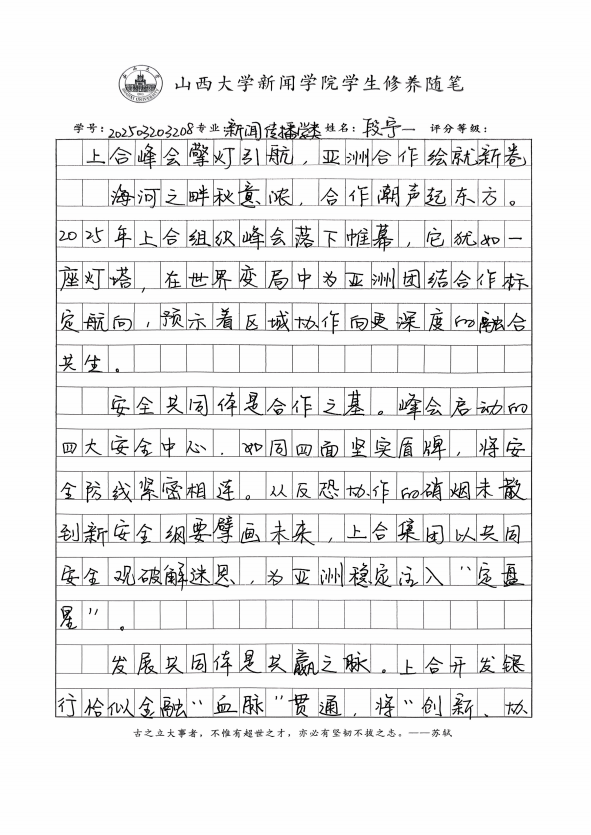 山西大学新闻学院学生修养随笔
学号：202503203208 专业 新闻传播学类 姓名：段宇一 评分等级：
上合峰会擎灯引航，亚洲合作绘就新卷
海河之畔秋意浓，合作潮声起东方。
2025年上合组织峰会落下帷幕，它犹如一
座灯塔，在世界变局中为亚洲团结合作标
定航向，预示着区域协作向更深度的融合
共生。
安全共同体是合作之基。峰会启动的
四大安全中心，如同四面坚实盾牌，将安
全防线紧密相连。从反恐协作的硝烟未散
到新安全纲要擘画未来，上合集团以共同
安全观破解迷思，为亚洲稳定注入“定盘
星”。
发展共同体是共赢之脉。上合开发银
行恰似金融“血脉”贯通，将“创新、协
古之立大事者，不惟有超世之才，亦必有坚韧不拔之志。——苏轼